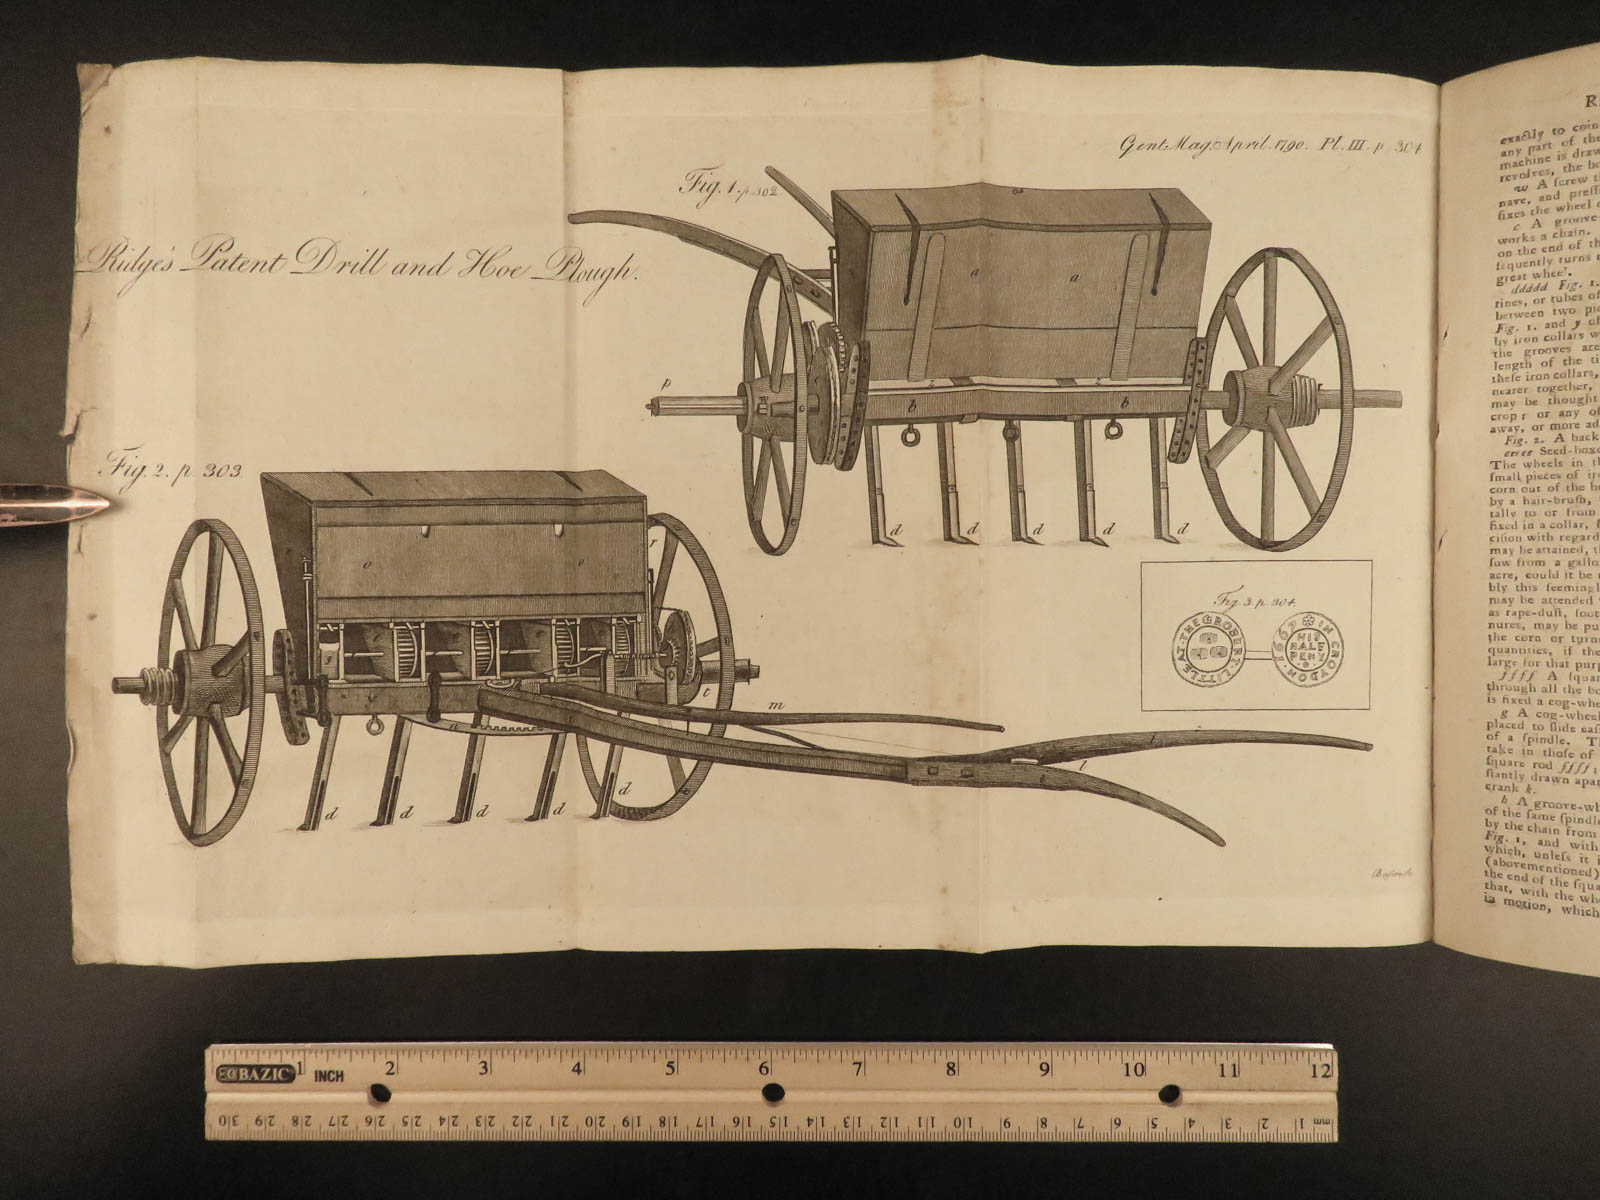 Gent. Mag. April. 1790. Pl. III. p. 304
Fig. 1. p. 302
Ridge's Patent Drill and Hoe Plough.
a a
p
w
z z
b b
d d d d d
Fig. 2. p. 303
o o
r
g
v
n
t
m
l
d d d d d
Fig. 3. p. 304.
ROBERT LITTLE AT THE
IN CROYDON 1667
HIS
HALF
PENY
exactly to coin
any part of the
machine is draw
revolves, the bo
w A ſcrew t
nave, and preſſ
fixes the wheel
c A groove-
works a chain.
on the end of th
ſequently turns
great wheel.
ddddd Fig. 1.
tines, or tubes of
between two pi
Fig. 1. and y of
by iron collars w
the grooves are
length of the ti
theſe iron collars,
nearer together,
may be thought
crop; or any of
away, or more ad
Fig. 2. A back
eeeee Seed-boxe
The wheels in th
ſmall pieces of ir
corn out of the h
by a hair-bruſh,
tally to or from
fixed in a collar,
ciſion with regard
may be attained, th
ſow from a gallo
acre, could it be
bly this ſeemingl
may be attended
as rape-duſt, ſoot
nures, may be pu
the corn or turn
quantities, if the
large for that purp
ffff A ſquar
through all the bo
is fixed a cog-whe
g A cog-wheel
placed to ſlide eaſ
of a ſpindle. T
take in thoſe of
ſquare rod ffff;
ſtantly drawn apar
crank k.
h A groove-wh
of the ſame ſpindle
by the chain from
Fig. 1, and with
which, unleſs it i
(abovementioned)
the end of the ſqua
that, with the whe
in motion, which
BAZIC 1 INCH 2 3 4 5 6 7 8 9 10 11 12
30 29 28 27 26 25 24 23 22 21 20 19 18 17 16 15 14 13 12 11 10 9 8 7 6 5 4 3 2 1 mm